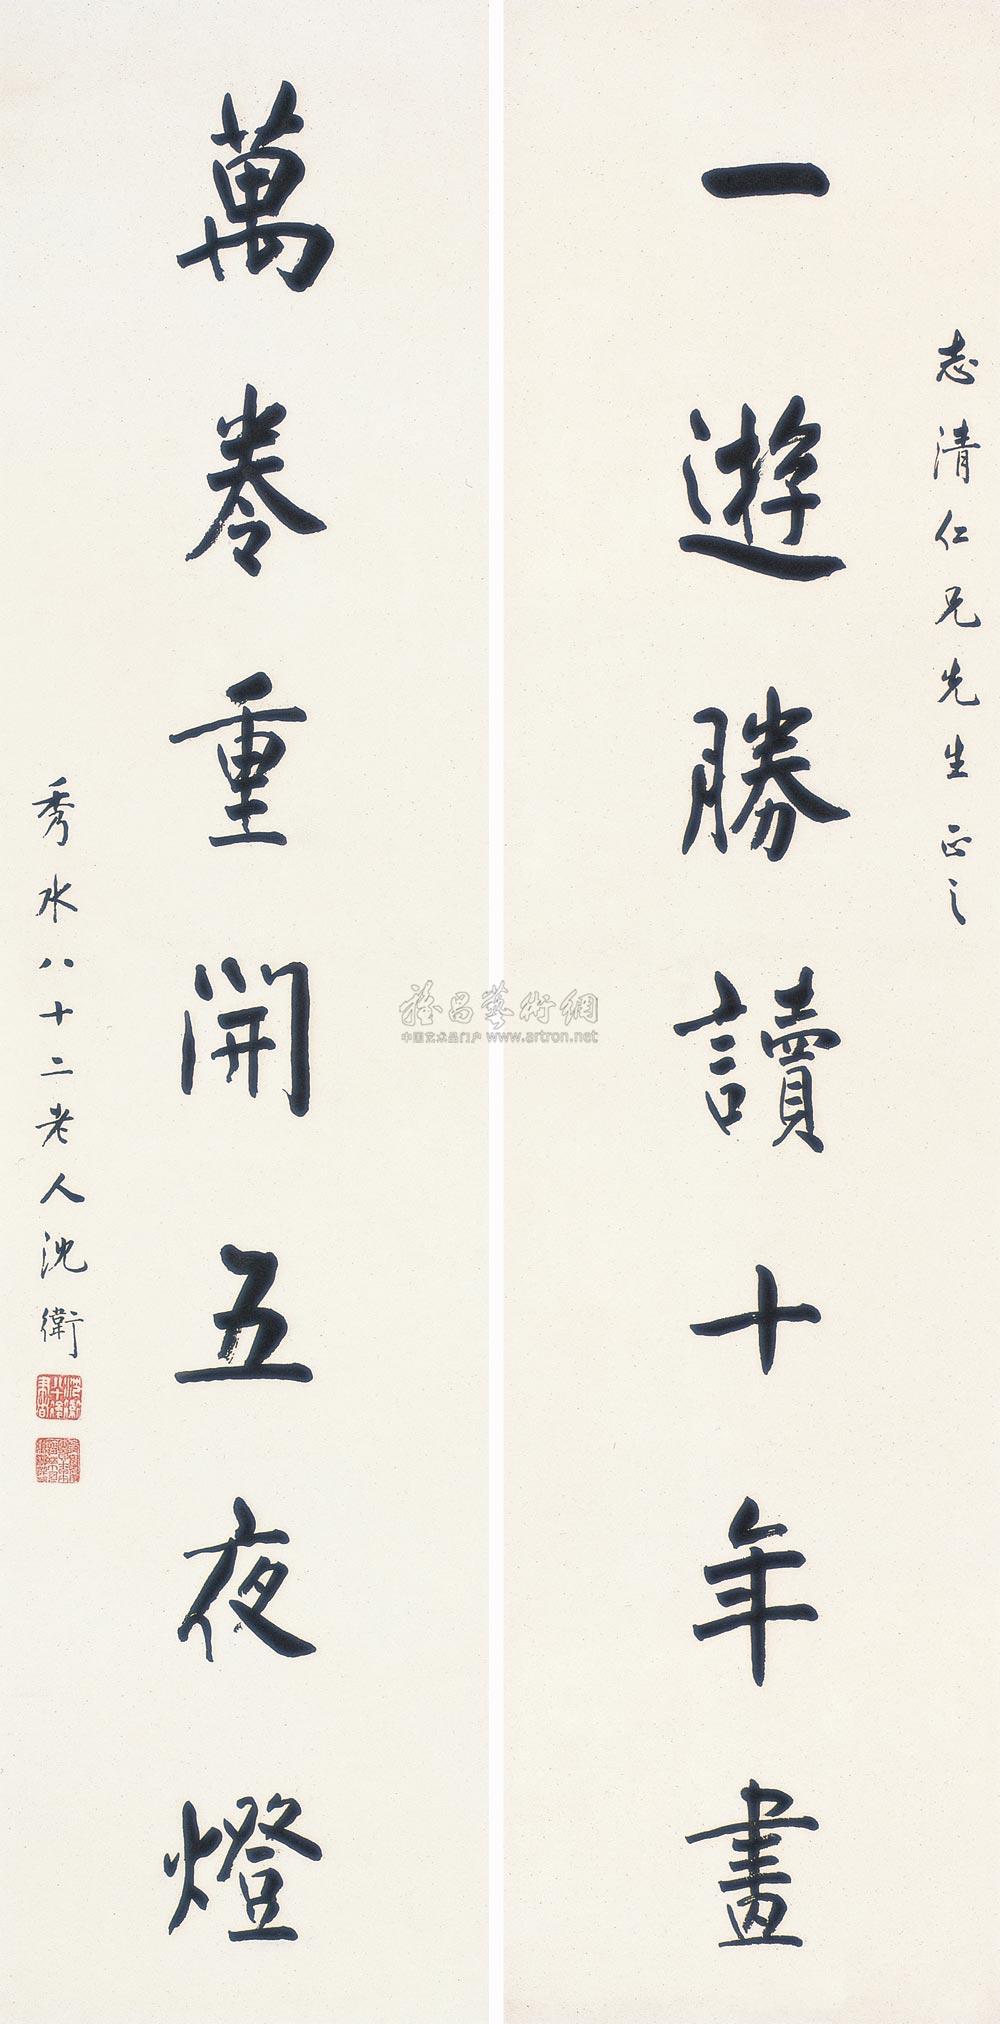 志清仁兄先生正之
一遊勝讀十年畫
萬卷重開五夜燈
秀水八十二老人沈衛
雅昌藝術網
中国艺术品门户 www.artron.net